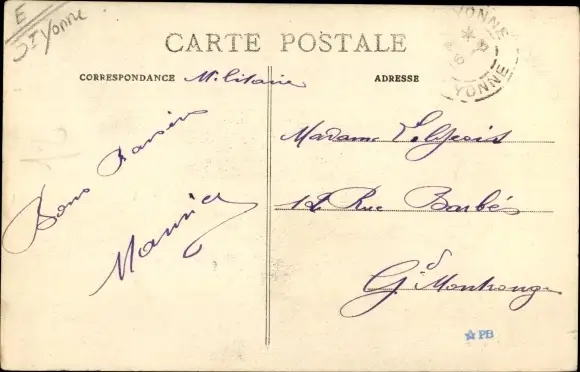 E
St Yonne
CARTE POSTALE
YONNE
YONNE
CORRESPONDANCE Militaire
ADRESSE
Bons Baisers
Maurice
Madame
12 Rue Barbés
Gd Montrouge
PB